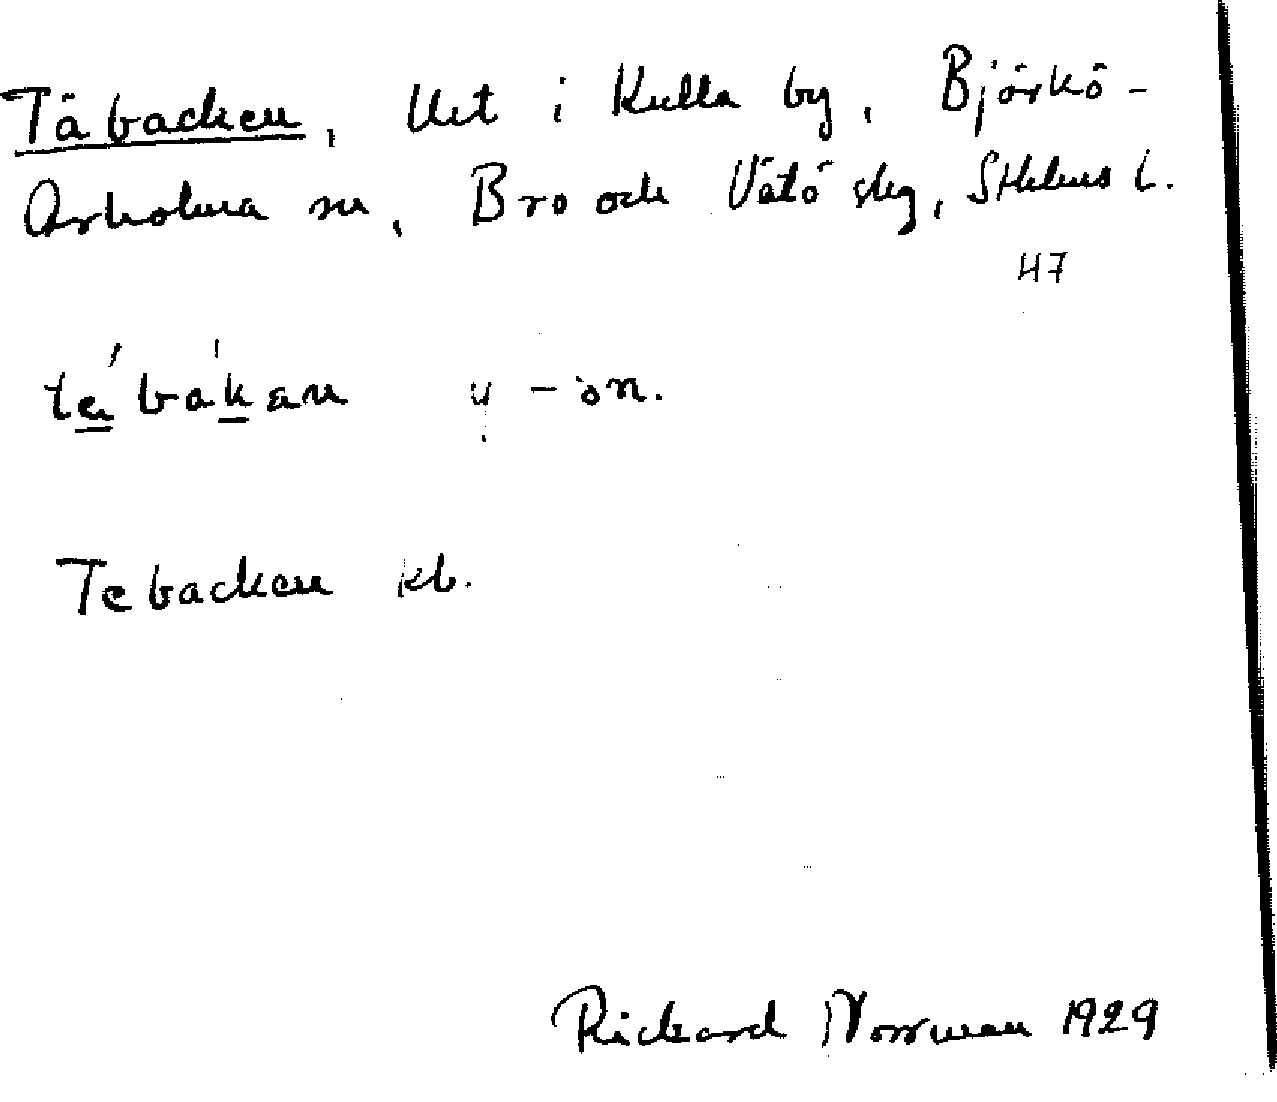 Täbacken, Uet i Kulla by, Björkö-
Arholma sn, Bro och Vätö skg, Sthlms l.
47
tébákan – ön.
Tebacken kb.
Rickard Norrman 1929